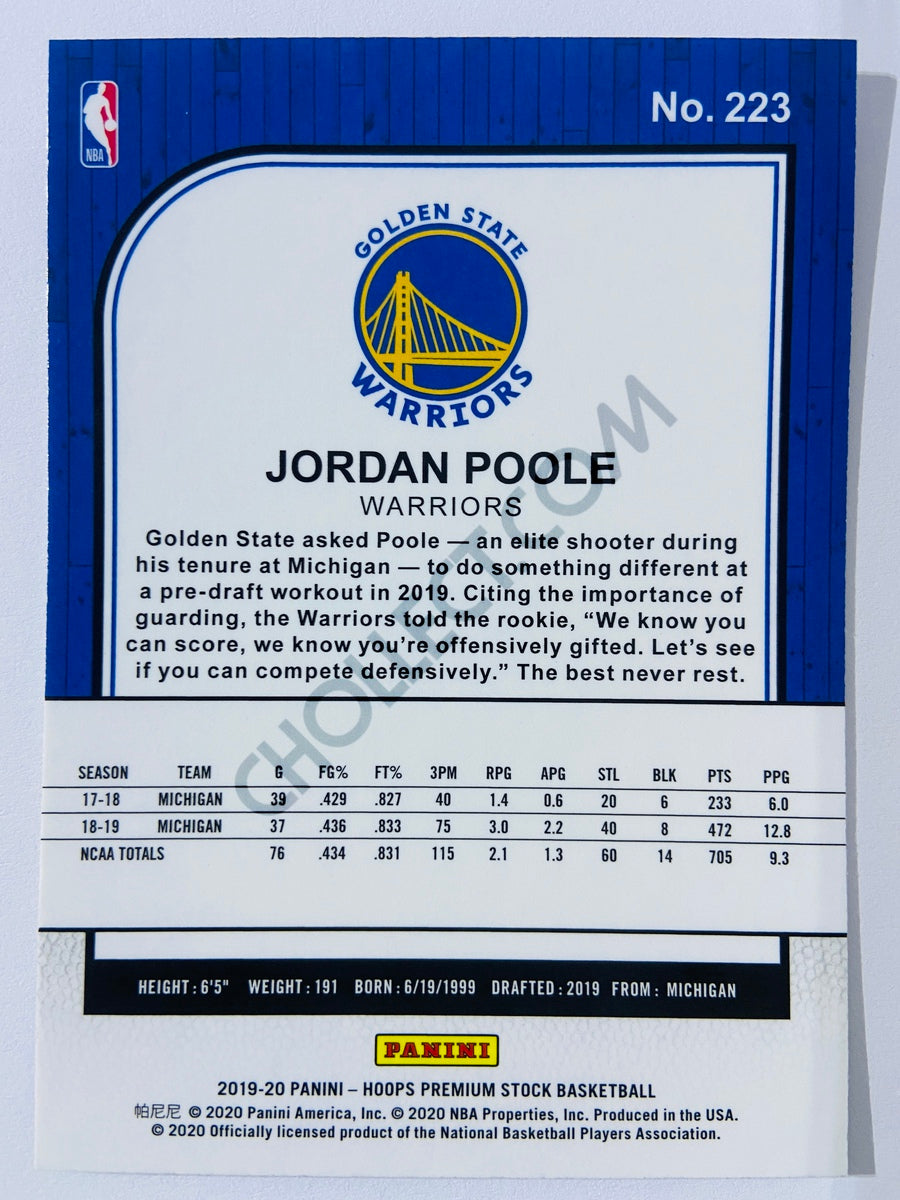 No. 223
NBA
GOLDEN STATE
WARRIORS
JORDAN POOLE
WARRIORS
Golden State asked Poole — an elite shooter during
his tenure at Michigan — to do something different at
a pre-draft workout in 2019. Citing the importance of
guarding, the Warriors told the rookie, “We know you
can score, we know you’re offensively gifted. Let’s see
if you can compete defensively.” The best never rest.
CHOLLECT.COM
SEASON TEAM G FG% FT% 3PM RPG APG STL BLK PTS PPG
17-18 MICHIGAN 39 .429 .827 40 1.4 0.6 20 6 233 6.0
18-19 MICHIGAN 37 .436 .833 75 3.0 2.2 40 8 472 12.8
NCAA TOTALS 76 .434 .831 115 2.1 1.3 60 14 705 9.3
HEIGHT: 6'5" WEIGHT: 191 BORN: 6/19/1999 DRAFTED: 2019 FROM: MICHIGAN
PANINI
2019-20 PANINI – HOOPS PREMIUM STOCK BASKETBALL
帕尼尼 © 2020 Panini America, Inc. © 2020 NBA Properties, Inc. Produced in the USA.
© 2020 Officially licensed product of the National Basketball Players Association.